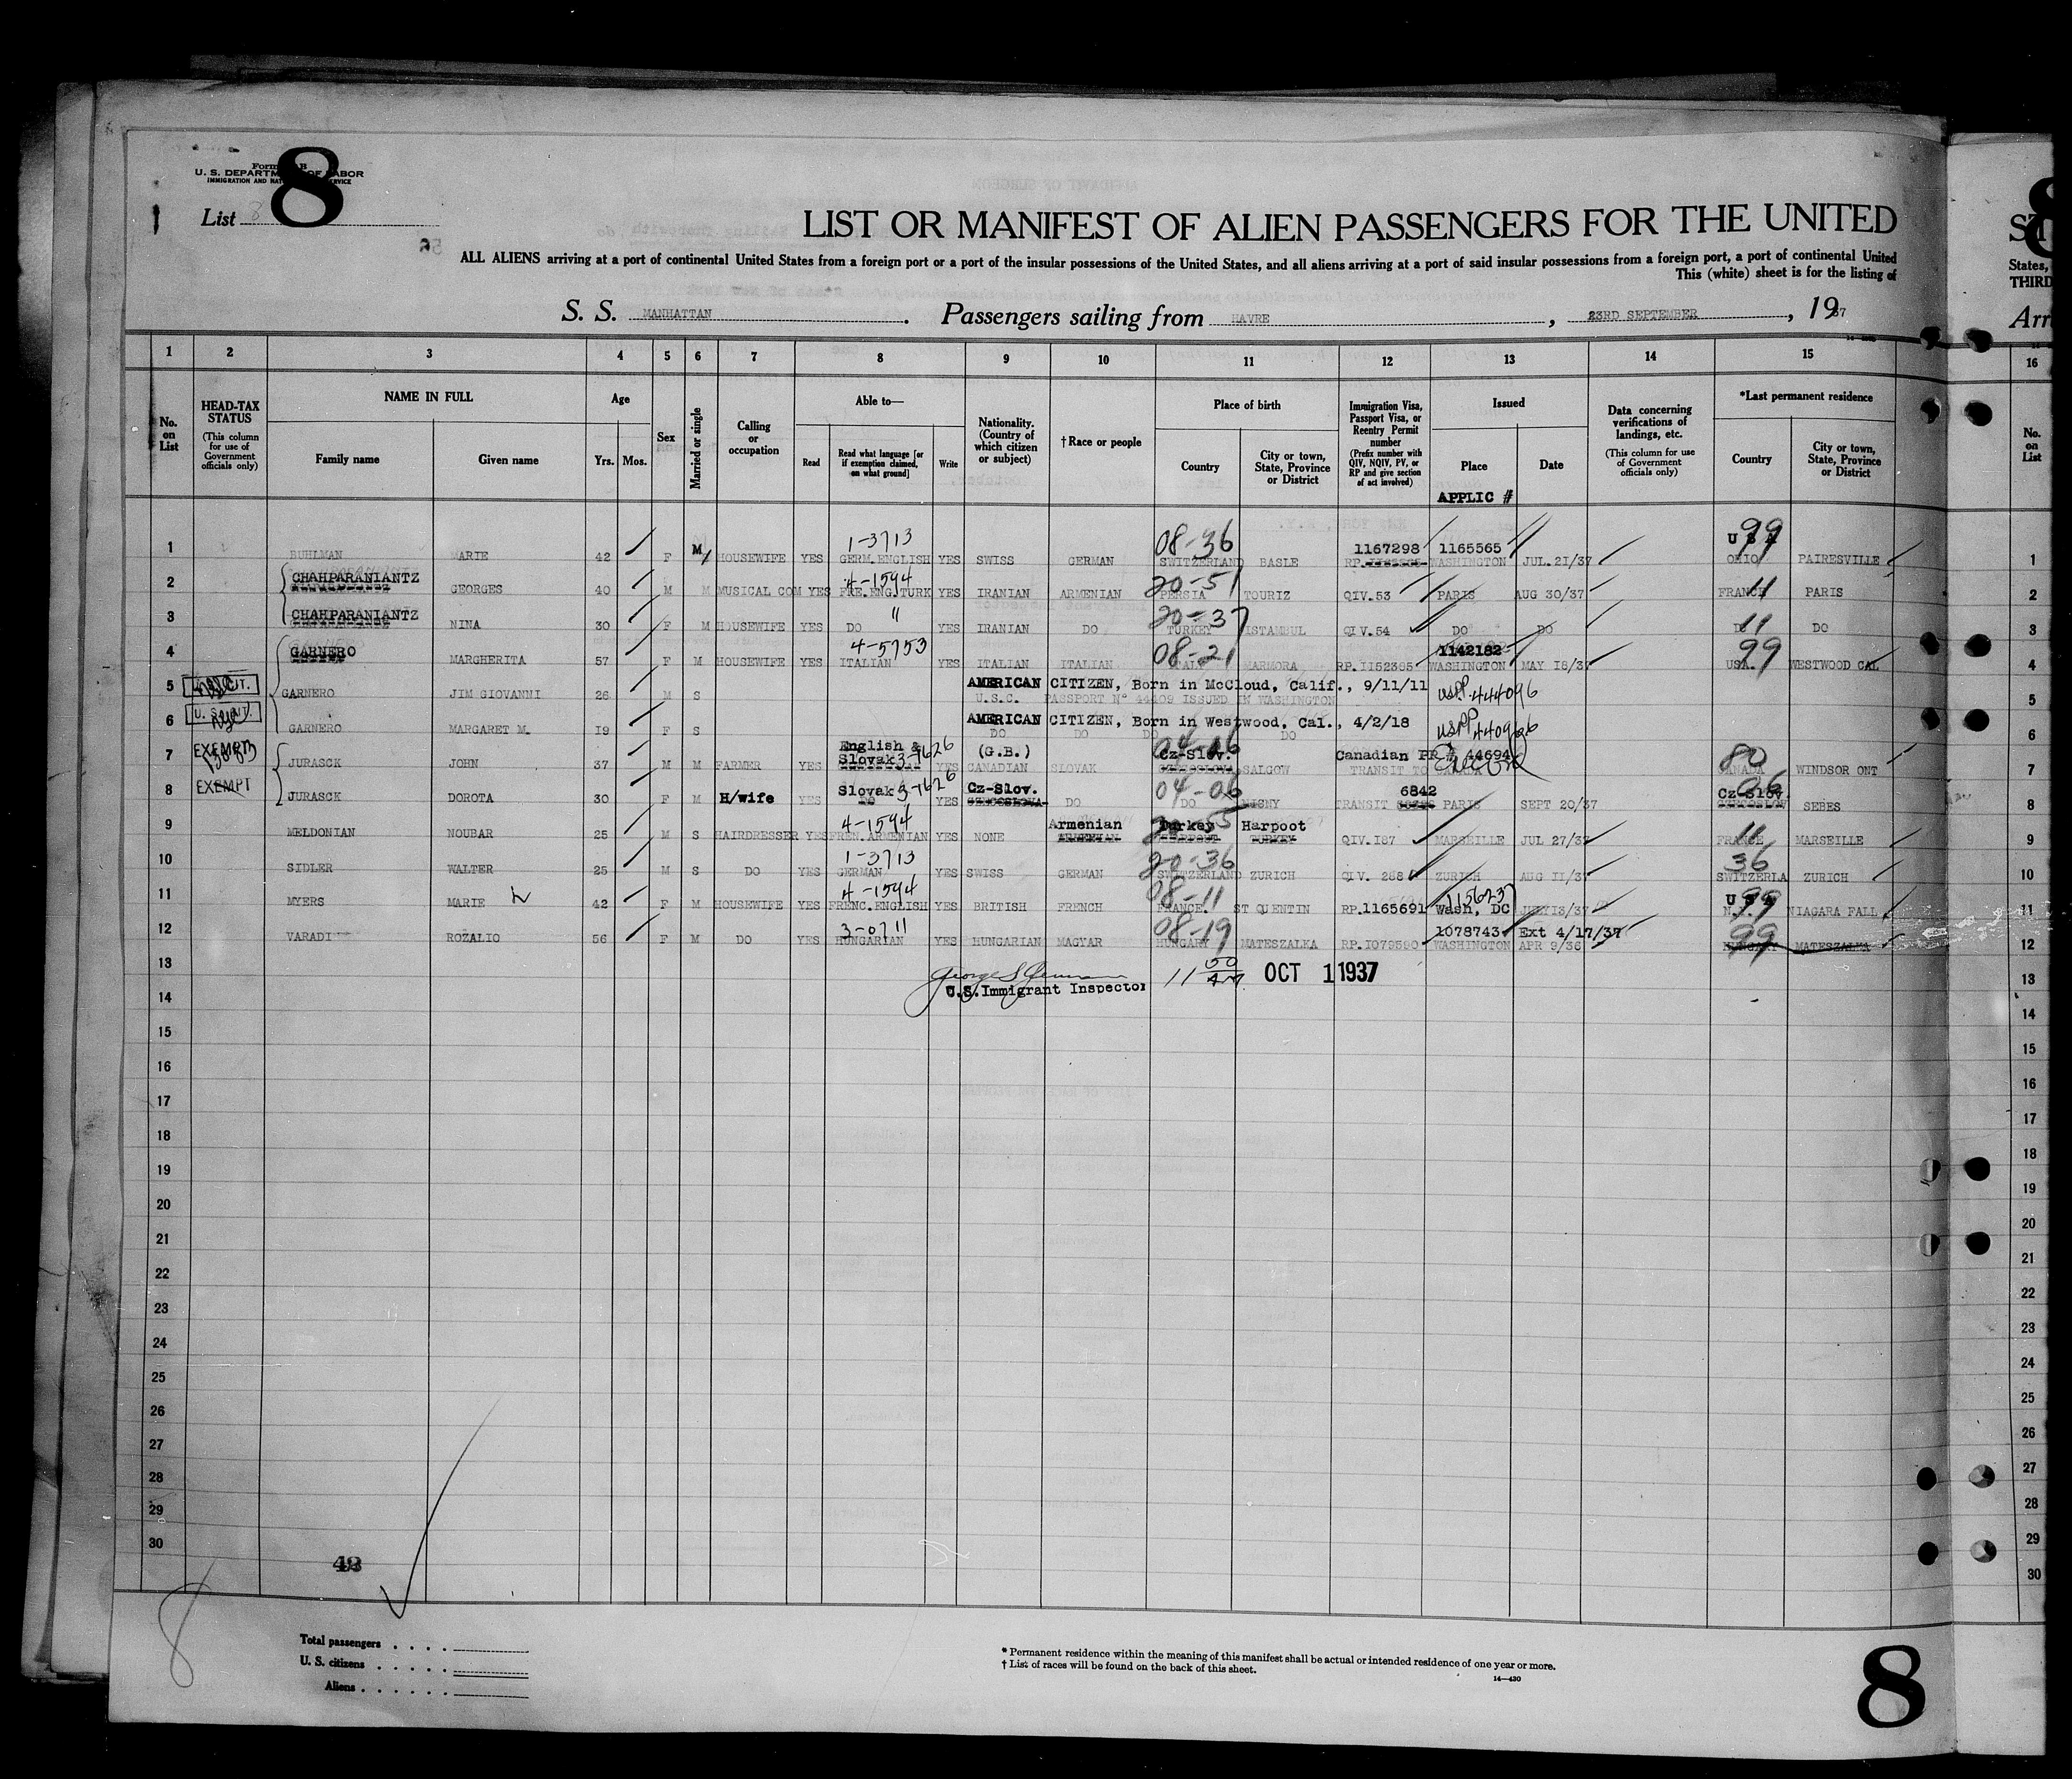 Form
U. S. DEPARTMENT OF LABOR
IMMIGRATION AND NATURALIZATION SERVICE
8
List 8
LIST OR MANIFEST OF ALIEN PASSENGERS FOR THE UNITED
ST
ALL ALIENS arriving at a port of continental United States from a foreign port or a port of the insular possessions of the United States, and all aliens arriving at a port of said insular possessions from a foreign port, a port of continental United
States,
This (white) sheet is for the listing of
THIRD
S. S. MANHATTAN. Passengers sailing from HAVRE, 23RD SEPTEMBER, 1937
Arr
1 2 3 4 5 6 7 8 9 10 11 12 13 14 15 16
No. on List
HEAD-TAX STATUS (This column for use of Government officials only)
NAME IN FULL Family name Given name
Age Yrs. Mos.
Sex
Married or single
Calling or occupation
Able to— Read Read what language [or if exemption claimed, on what ground] Write
Nationality. (Country of which citizen or subject)
†Race or people
Place of birth Country City or town, State, Province or District
Immigration Visa, Passport Visa, or Reentry Permit number (Prefix number with QIV, NQIV, PV, or RP and give section of act involved)
Issued Place Date
APPLIC #
Data concerning verifications of landings, etc. (This column for use of Government officials only)
*Last permanent residence Country City or town, State, Province or District
No. on List
1-3713 08-36 1167298 1165565 U S A 99
1 BUHLMAN MARIE 42 F M HOUSEWIFE YES GERM.ENGLISH YES SWISS GERMAN SWITZERLAND BASLE RP. WASHINGTON JUL.21/37 OHIO PAIRESVILLE 1
CHAHPARANIANTZ 4-1594 20-51
2 GEORGES 40 M M MUSICAL COM YES FRE.ENG.TURK YES IRANIAN ARMENIAN PERSIA TOURIZ QIV.53 PARIS AUG 30/37 FRANCE 11 PARIS 2
CHAHPARANIANTZ " 20-37
3 NINA 30 F M HOUSEWIFE YES DO YES IRANIAN DO TURKEY ISTAMBUL QIV.54 DO DO DO 11 DO 3
GARNERO 4-5753 08-21 1142182 99
4 MARGHERITA 57 F M HOUSEWIFE YES ITALIAN YES ITALIAN ITALIAN ITALY MARMORA RP.1152385 WASHINGTON MAY 18/37 USA. WESTWOOD CAL 4
AMERICAN CITIZEN, Born in McCloud, Calif., 9/11/11
5 GARNERO JIM GIOVANNI 26 M S U.S.C. PASSPORT N° 44409 ISSUED IN WASHINGTON USPP.444096 5
U. S. CIT. AMERICAN CITIZEN, Born in Westwood, Cal., 4/2/18
6 GARNERO MARGARET M. 19 F S DO DO DO DO 6
EXEMPT English & Slovak 3-7626 (G.B.) Cz-Slov. 04-06 Canadian PP # 44694 80
7 JURASCK JOHN 37 M M FARMER YES YES CANADIAN SLOVAK SALGOW TRANSIT TO CANADA CANADA WINDSOR ONT 7
EXEMPT Slovak 3-7626 Cz-Slov. 04-06 6842 Cz-Slov. 06
8 JURASCK DOROTA 30 F M H/wife YES DO YES DO DO TRANSIT PARIS SEPT 20/37 SEBES 8
4-1594 Armenian Turkey Harpoot
9 MELDONIAN NOUBAR 25 M S HAIRDRESSER YES FREN.ARMENIAN YES NONE ARMENIAN TURKEY QIV.187 MARSEILLE JUL 27/37 FRANCE 11 MARSEILLE 9
1-3713 20-36 36
10 SIDLER WALTER 25 M S DO YES GERMAN YES SWISS GERMAN SWITZERLAND ZURICH QIV. 288 ZURICH AUG 11/37 SWITZERLA ZURICH 10
4-1594 08-11 U S A 99
11 MYERS MARIE 42 F M HOUSEWIFE YES FRENC.ENGLISH YES BRITISH FRENCH FRANCE. ST QUENTIN RP.1165691 Wash, DC N.Y. NIAGARA FALL 11
3-0711 08-19 1078743 Ext 4/17/37 99
12 VARADI ROZALIO 56 F M DO YES HUNGARIAN YES HUNGARIAN MAGYAR HUNGARY MATESZALKA RP.1079590 WASHINGTON APR 9/36 HUNGARY MATESZALKA 12
13 11 50 AM OCT 1 1937 13
U.S. Immigrant Inspector
14 14
15 15
16 16
17 17
18 18
19 19
20 20
21 21
22 22
23 23
24 24
25 25
26 26
27 27
28 28
29 29
30 30
8
Total passengers
U. S. citizens
Aliens
* Permanent residence within the meaning of this manifest shall be actual or intended residence of one year or more.
† List of races will be found on the back of this sheet.
14—430
8